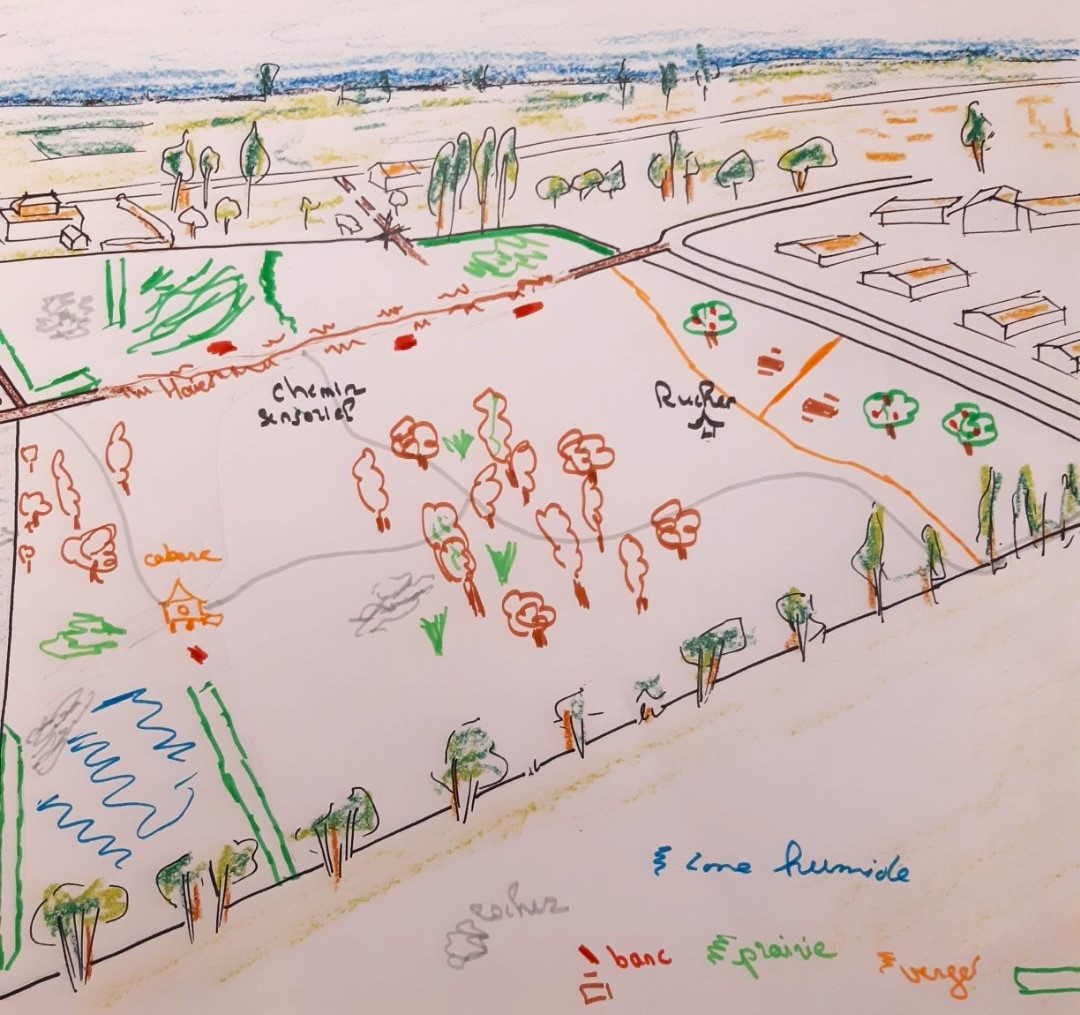 Haie
chemin
sensoriel
Rucher
cabane
zone humide
rocher
banc
prairie
verger